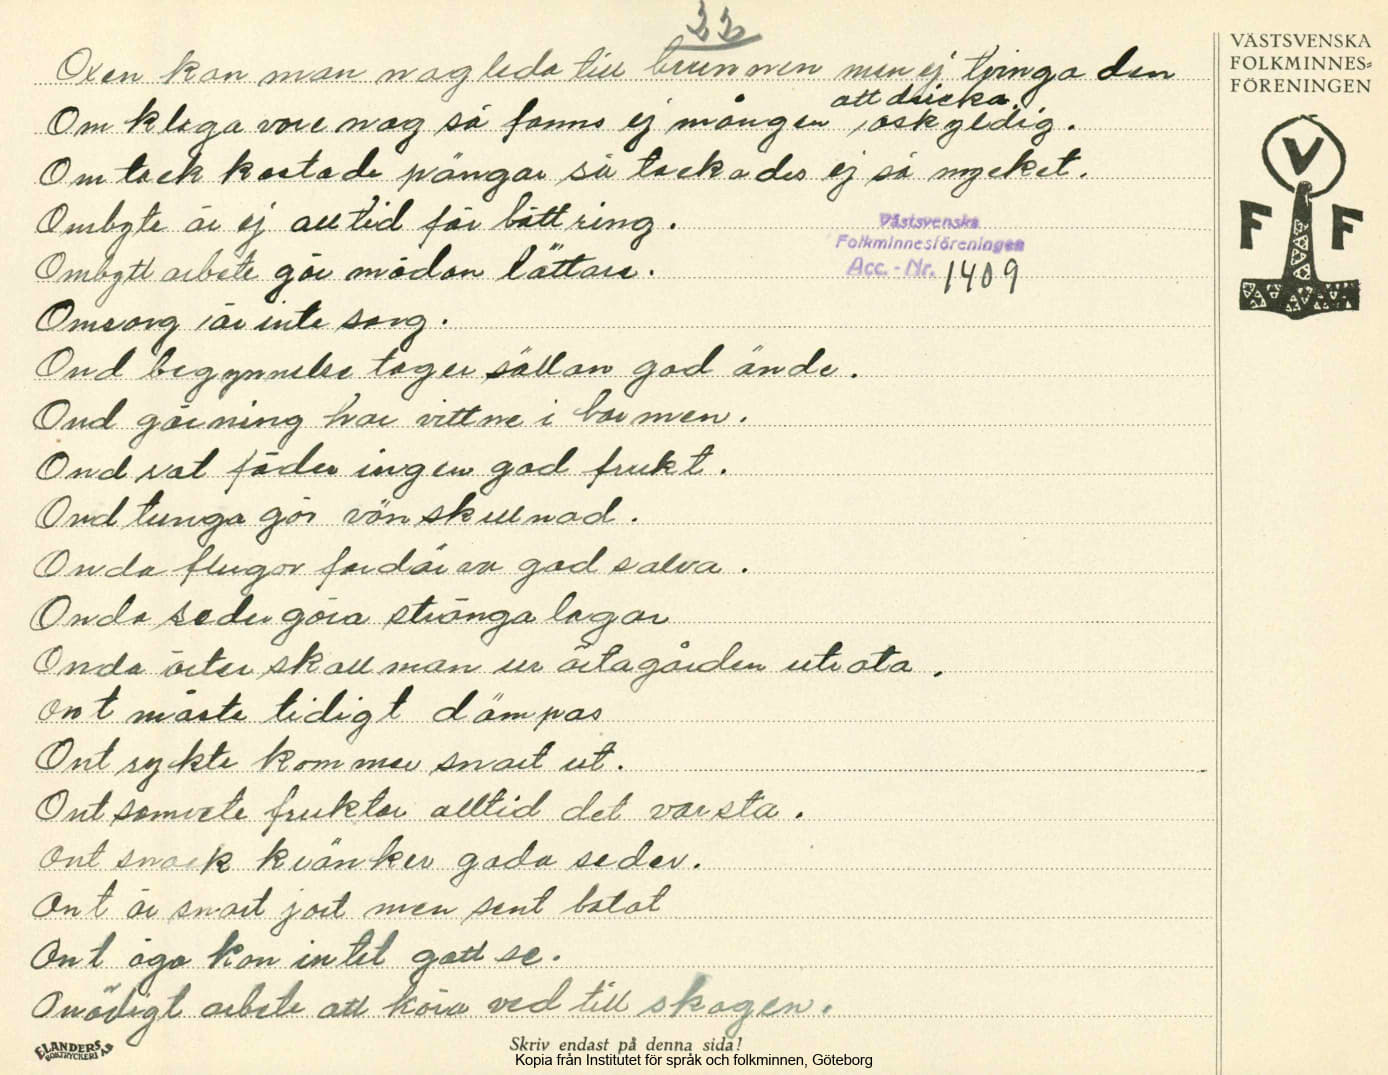 33
Oxen kan man nog leda till brunnen men ej tvinga den
att dricka.
Om klaga vore nog så fanns ej mången oskyldig.
Om tack kostade pängar så tackades ej så mycket.
Ombyte är ej alltid för bättring.
Ombytt arbete gör mödan lättare.
Omsorg är inte sorg.
Ond begynnelse tager sällan god ände.
Ond gärning har vittne i barmen.
Ond rot föder ingen god frukt.
Ond tunga gör vänskillnad.
Onda flugor fördärva god salva.
Onda seder göra stränga lagar
Onda örter skall man ur örtagården utrota.
ont måste tidigt dämpas
Ont rykte kommer snart ut.
Ont samvete fruktar alltid det varsta.
ont snack kränker goda seder.
Ont är snart jort men sent botat
Ont öga kan intet gott se.
Onödigt arbete att köra ved till skogen.
Västsvenska
Folkminnesföreningen
Acc.-Nr. 1409
VÄSTSVENSKA
FOLKMINNES-
FÖRENINGEN
V
F F
ELANDERS
BOKTRYCKERI AB
Skriv endast på denna sida!
Kopia från Institutet för språk och folkminnen, Göteborg